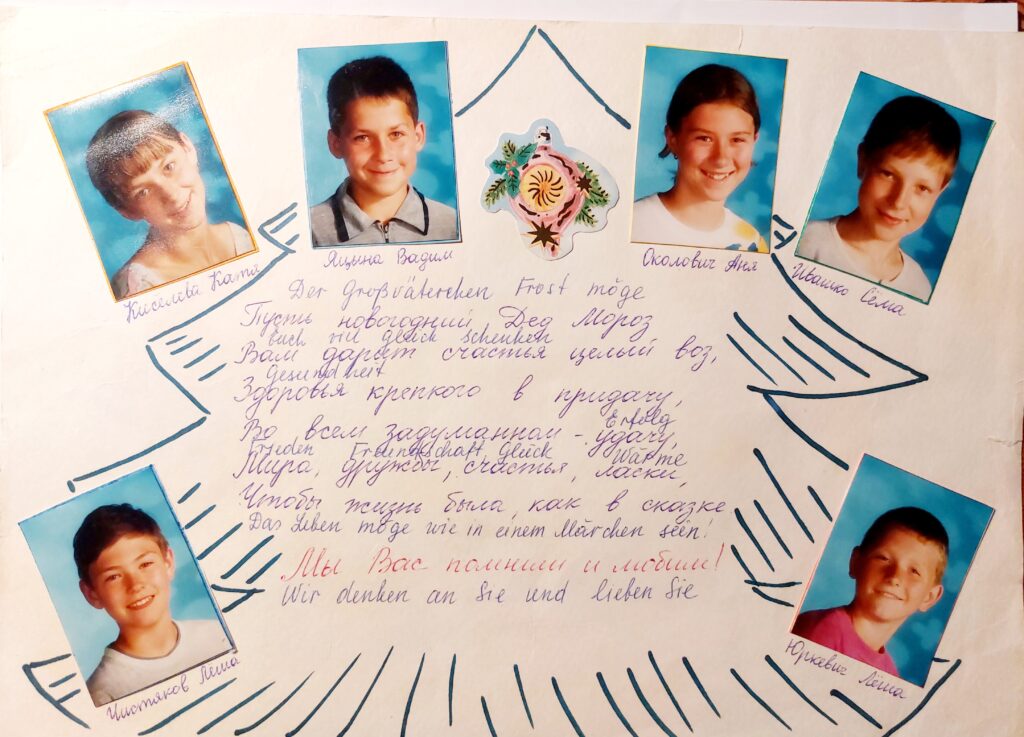 Киселёва Катя
Яцына Вадим
Околович Аня
Ивашко Сёма
Der Großväterchen Frost möge
Пусть новогодний Дед Мороз
Euch viel Glück schenken
Вам дарит счастья целый воз,
Gesundheit
Здоровья крепкого в придачу,
Erfolg
Во всем задуманном - удачу,
Frieden Freundschaft Glück Wärme
Мира, дружбы, счастья, ласки,
Чтобы жизнь была, как в сказке
Das Leben möge wie in einem Märchen sein!
Мы Вас помним и любим!
Wir denken an Sie und lieben Sie
Чистяков Леша
Юркевич Лёша